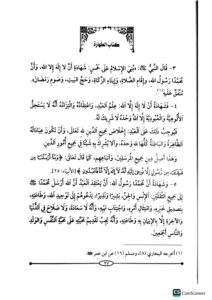 كتاب الطهارة
٣ـ قال النبي ﷺ: «بني الإسلام على خمس: شهادة أن لا إله إلا الله، وأن
محمدا رسول الله، وإقام الصلاة، وإيتاء الزكاة، وحج البيت، وصوم رمضان».
متفق عليه(١)
٤ـ فشهادة أن لا إله إلا الله: علم العبد، واعتقاده والتزامه أنه لا يستحق
الألوهية والعبودية إلا الله وحده لا شريك له.
فيوجب ذلك على العبد: إخلاص جميع الدين لله تعالى، وأن تكون عباداته
الظاهرة والباطنة كلها لله وحده، وألا يشرك به شيئا في جميع أمور الدين.
وهذا أصل دين جميع المرسلين، وأتباعهم، كما قال تعالى: ﴿وما أرسلنا من
قبلك من رسول إلا نوحي إليه أنه لا إله إلا أنا فاعبدون﴾ [الأنبياء: ٢٥].
٥ـ وشهادة أن محمدا رسول الله: أن يعتقد العبد أن الله أرسل محمدا ﷺ
إلى جميع الثقلين: الإنس والجن، بشيرا ونذيرا، يدعوهم إلى توحيد الله، وطاعته،
بتصديق خبره، وامتثال أمره، واجتناب نهيه، وأنه لا سعادة، ولا صلاح في الدنيا
والآخرة إلا بالإيمان به وطاعته، وأنه يجب تقديم محبته على محبة النفس والولد
والناس أجمعين.
(١) أخرجه البخاري (٨)، ومسلم (١٦) عن ابن عمر
CS CamScanner